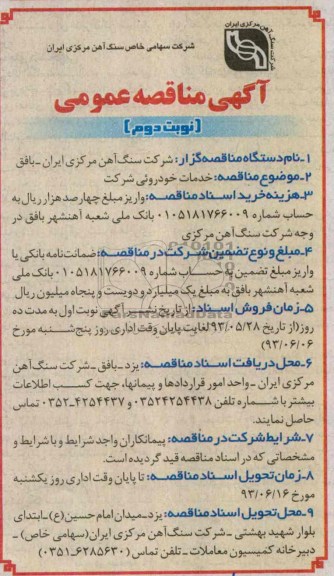 شرکت سنگ آهن مرکزی ایران
شرکت سهامی خاص سنگ آهن مرکزی ایران
آگهی مناقصه عمومی
(نوبت دوم)
۱ـ نام دستگاه مناقصه گزار: شرکت سنگ آهن مرکزی ایران ـ بافق
۲ـ موضوع مناقصه: خدمات خودروئی شرکت
۳ـ هزینه خرید اسناد مناقصه: واریز مبلغ چهارصد هزار ریال به
حساب شماره ۰۱۰۵۱۸۱۷۶۶۰۰۹ بانک ملی شعبه آهنشهر بافق در
وجه شرکت سنگ آهن مرکزی
۴ـ مبلغ و نوع تضمین شرکت در مناقصه: ضمانت نامه بانکی یا
واریز مبلغ تضمین به حساب شماره ۰۱۰۵۱۸۱۷۶۶۰۰۹ بانک ملی
شعبه آهنشهر بافق به مبلغ یک میلیارد و دویست و پنجاه میلیون ریال
۵ـ زمان فروش اسناد: از تاریخ نشر آگهی نوبت اول به مدت ده
روز (از تاریخ ۹۳/۰۵/۲۸ لغایت پایان وقت اداری روز پنج شنبه مورخ
۹۳/۰۶/۰۶)
۶ـ محل دریافت اسناد مناقصه: یزد ـ بافق ـ شرکت سنگ آهن
مرکزی ایران ـ واحد امور قراردادها و پیمانها، جهت کسب اطلاعات
بیشتر با شماره تلفن ۰۳۵۲۴۲۵۴۴۳۸ و ۴۲۵۴۴۳۷ـ۰۳۵۲ تماس
حاصل نمایند.
۷ـ شرایط شرکت در مناقصه: پیمانکاران واجد شرایط و با شرایط و
مشخصاتی که در اسناد مناقصه قید گردیده است.
۸ـ زمان تحویل اسناد مناقصه: تا پایان وقت اداری روز یکشنبه
مورخ ۹۳/۰۶/۱۶
۹ـ محل تحویل اسناد مناقصه: یزد ـ میدان امام حسین(ع) ـ ابتدای
بلوار شهید بهشتی ـ شرکت سنگ آهن مرکزی ایران (سهامی خاص) ـ
دبیرخانه کمیسیون معاملات ـ تلفن تماس (۶۲۸۵۶۳۰ـ۰۳۵۱)